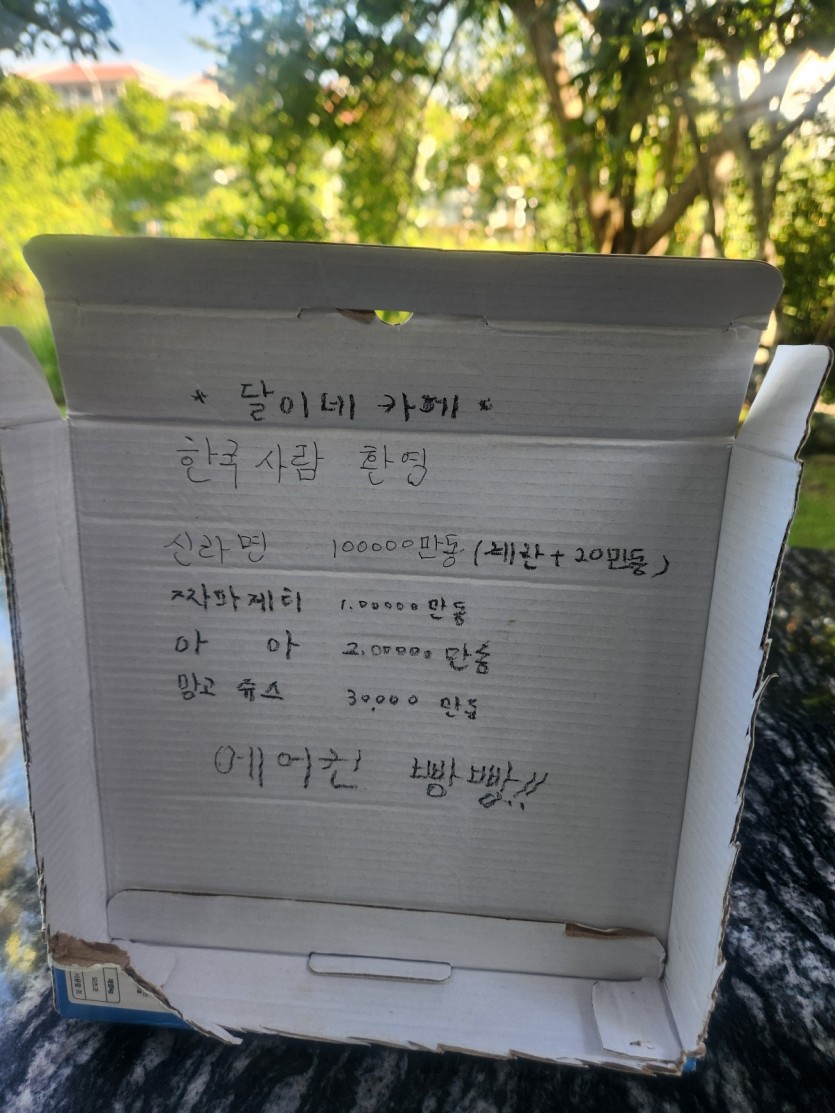 * 달이네 카페 *
한국 사람 환영
신라면 100000만동 (계란 + 20만동)
짜파게티 1.00000 만동
아 아 2.00000 만동
망고 쥬스 30,000 만동
에어컨 빵빵!!